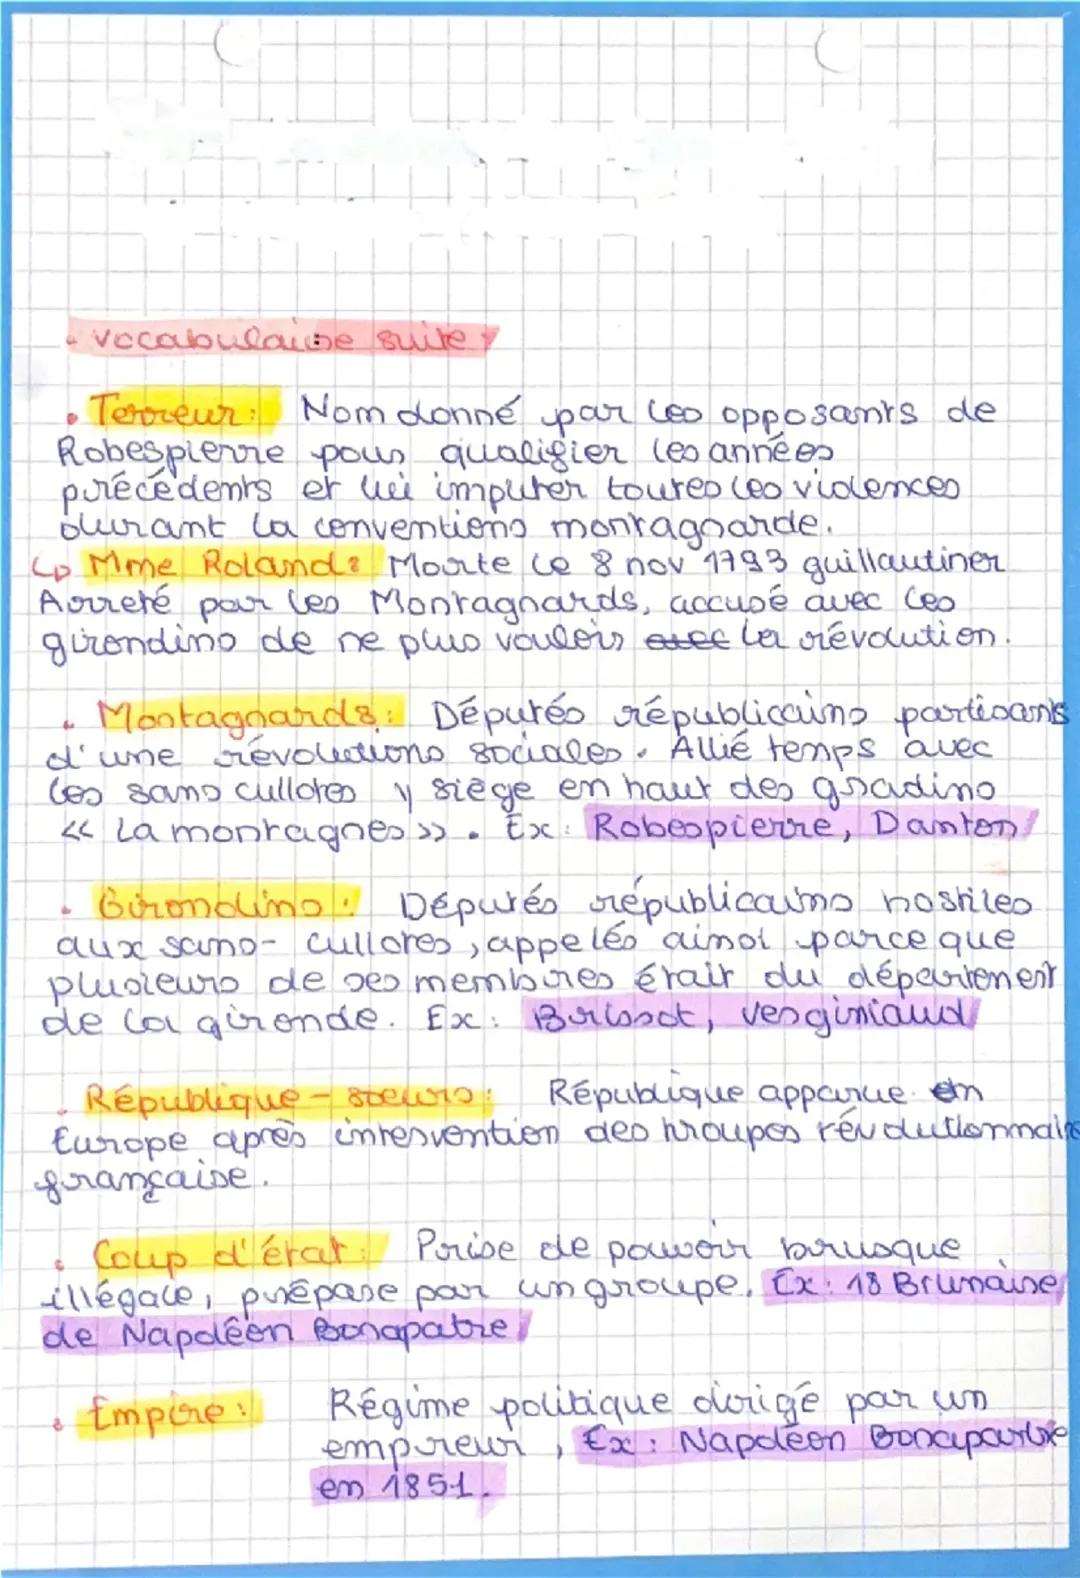 vocabulaire suite
• Terreur : Nom donné par les opposants de
Robespierre pour qualifier les années
précédents et lui imputer toutes les violences
durant la conventions montagnarde.
↳ Mme Roland : Morte le 8 nov 1793 guillautiner
Arreté par les Montagnards, accusé avec les
girondins de ne plus vouloir avec la révolution.
• Montagnards : Députés républicains partisants
d'une révolutions sociales. Allié temps avec
les sans cullotes y siège en haut des gradins
<< La montagnes >>. Ex : Robespierre, Danton
• Girondins : Députés républicains hostiles
aux sans-cullotes, appelés ainsi parce que
plusieurs de ses membres était du département
de la gironde. Ex : Brissot, verginiaud
• République-soeurs : République apparue en
Europe après intervention des troupes révolutionnaire
française.
• Coup d'état : Prise de pouvoir brusque
illégale, prépare par un groupe. Ex : 18 Brumaire
de Napoléon Bonapatre
• Empire : Régime politique dirigé par un
empreur, Ex : Napoléon Bonaparte
en 1851.